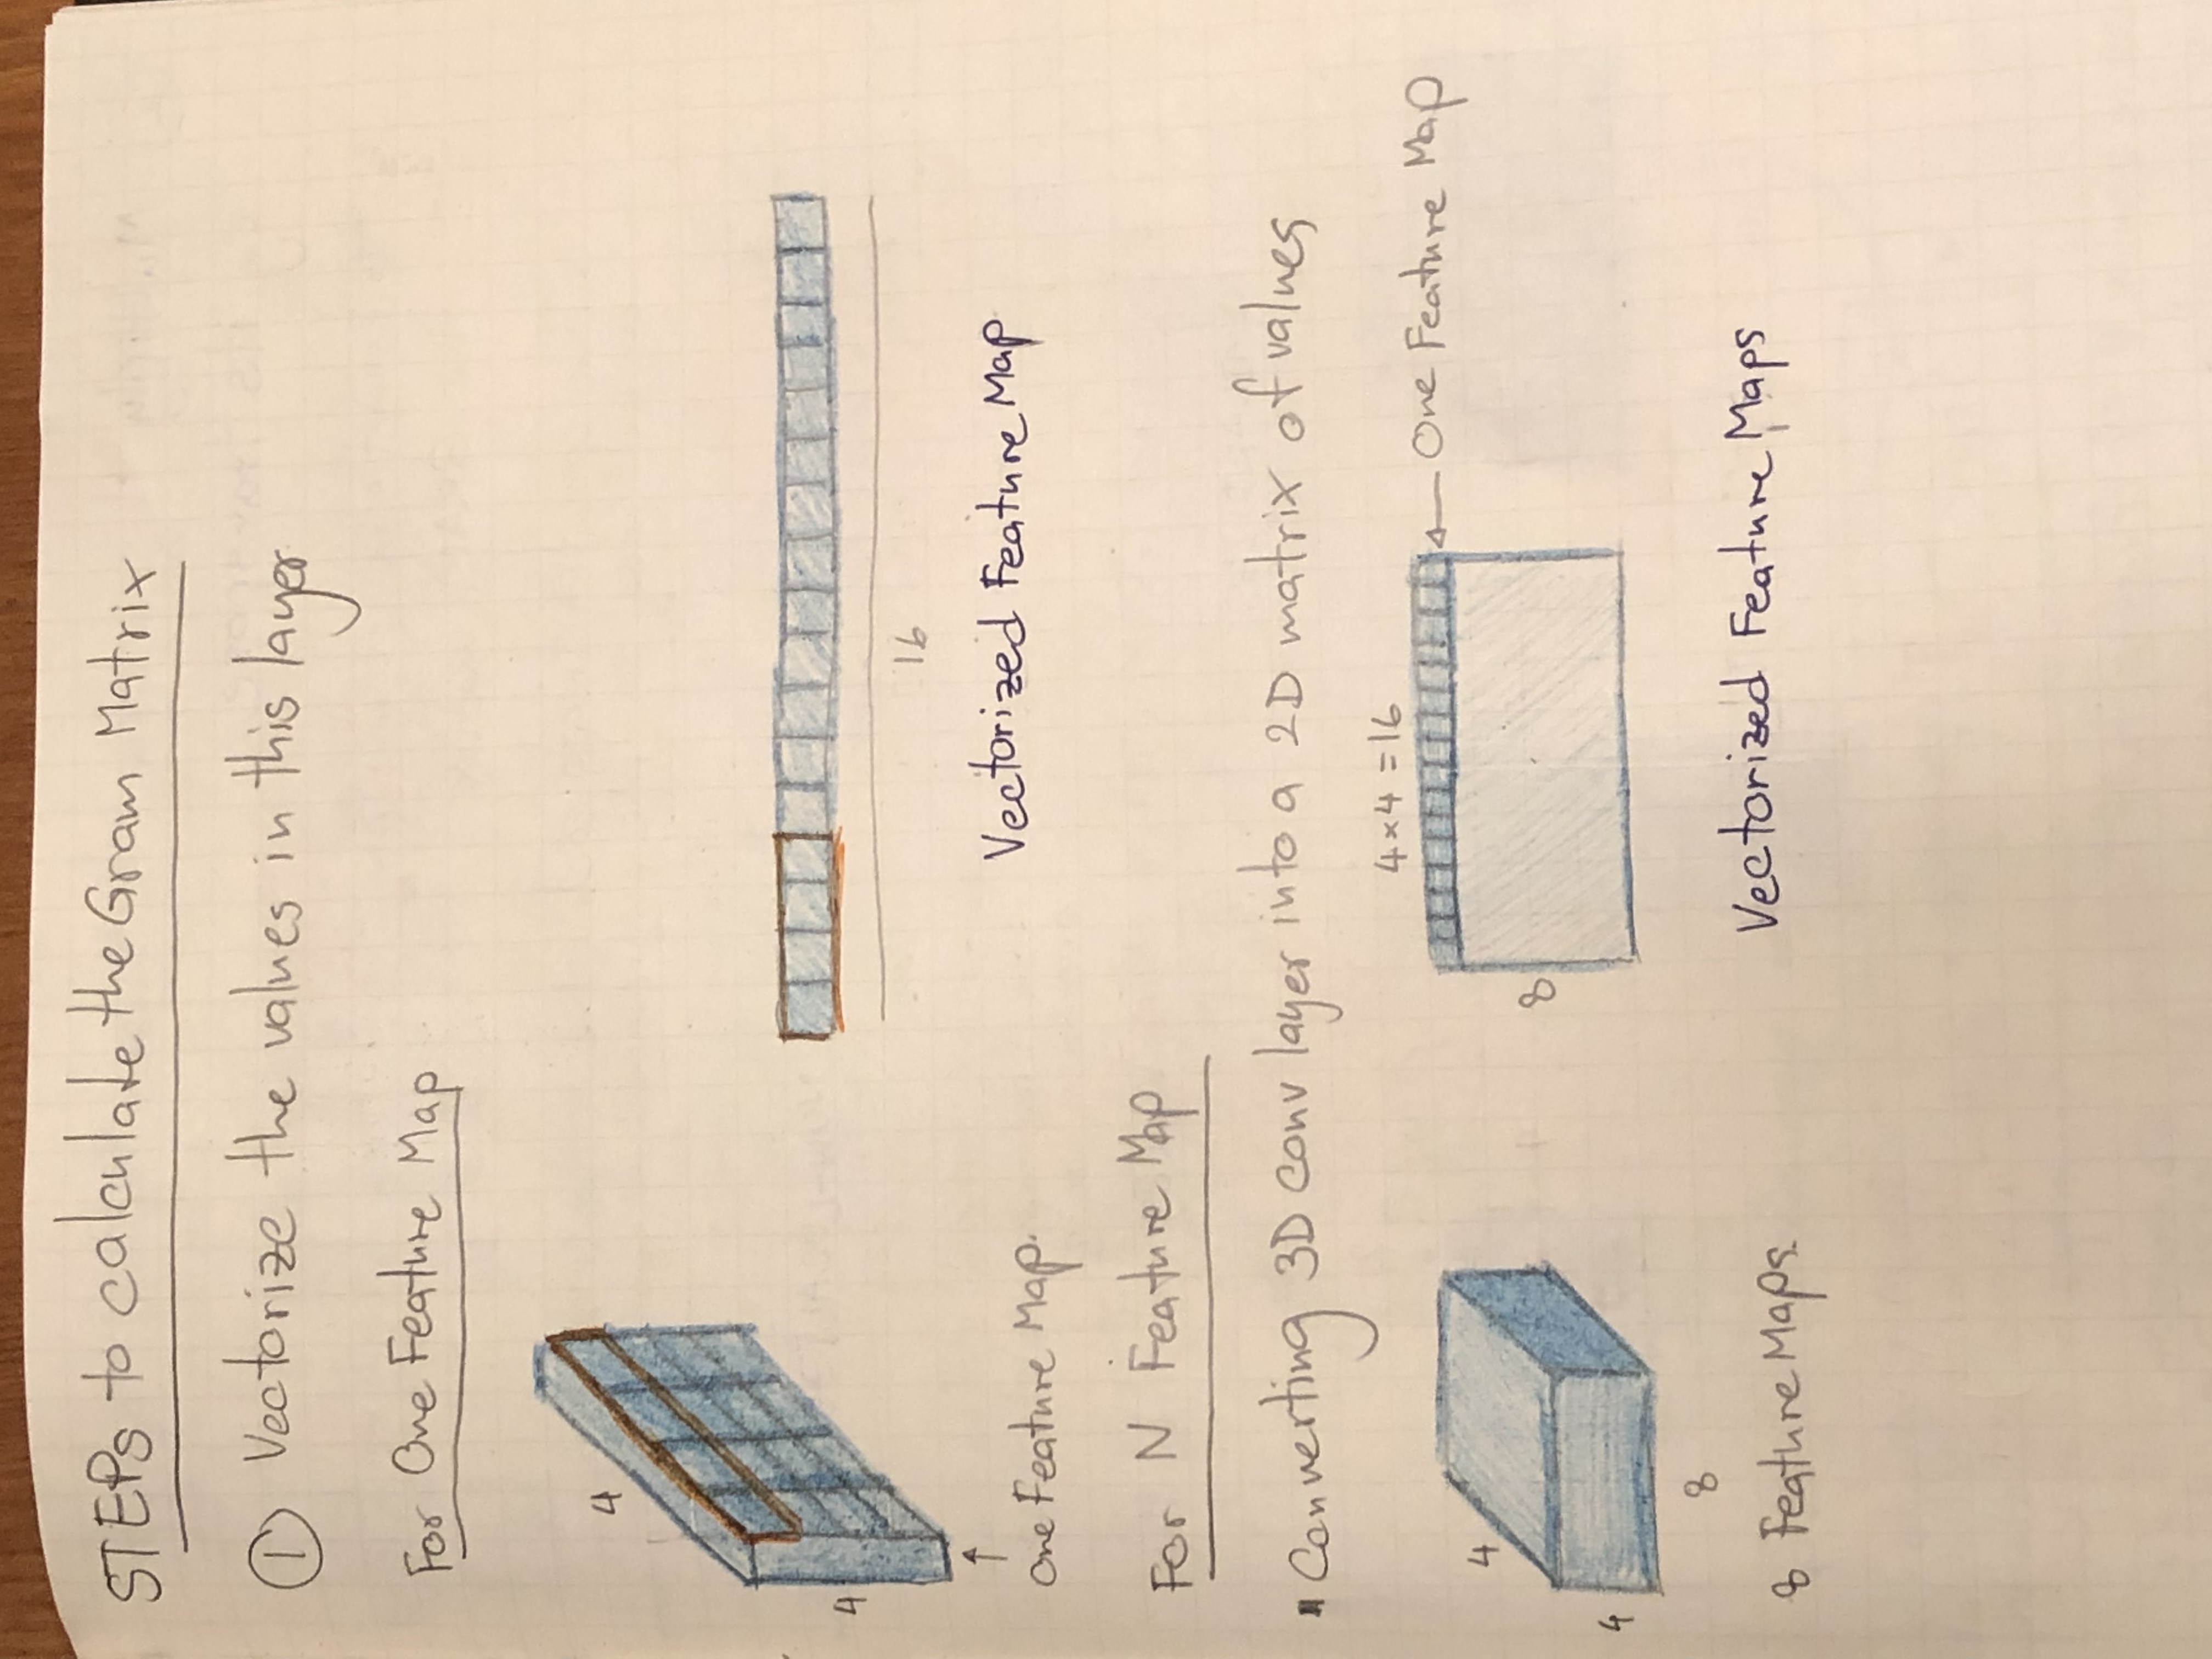 STEPs to calculate the Gram Matrix
1 Vectorize the values in this layer
For One Feature Map
4
4
16
One Feature Map.
Vectorized Feature Map
For N Feature Map
Converting 3D conv layer into a 2D matrix of values
4x4 = 16
One Feature Map
4
8
4
8
8 Feature Maps.
Vectorized Feature Maps